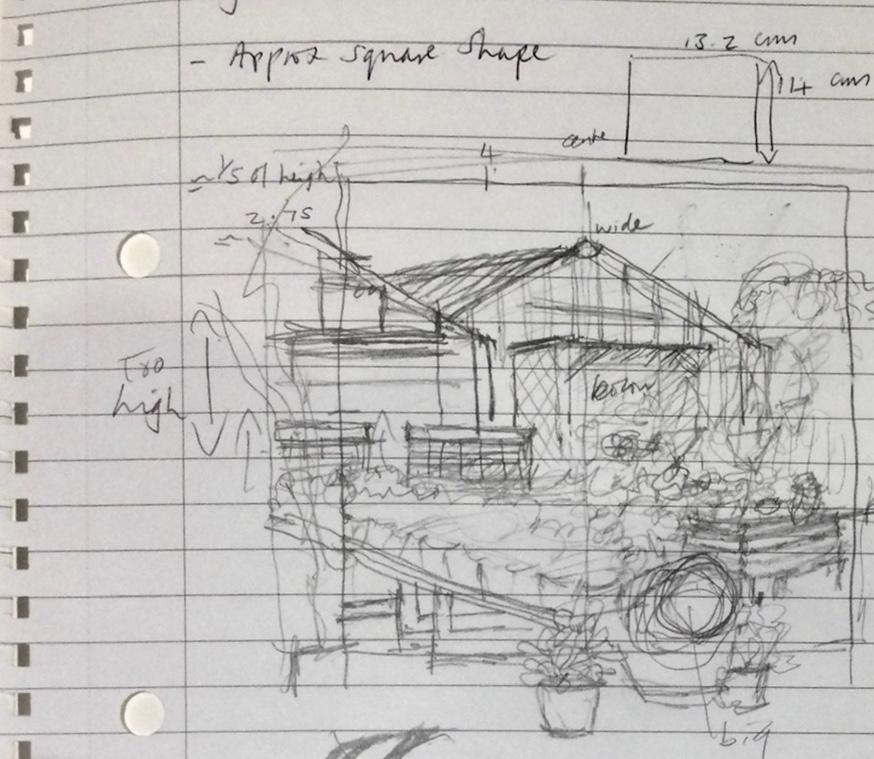 - Approx square shape
13.2 cms
14 cms
centre
4
~ 1/5 of height
2.75
wide
Too
high
big